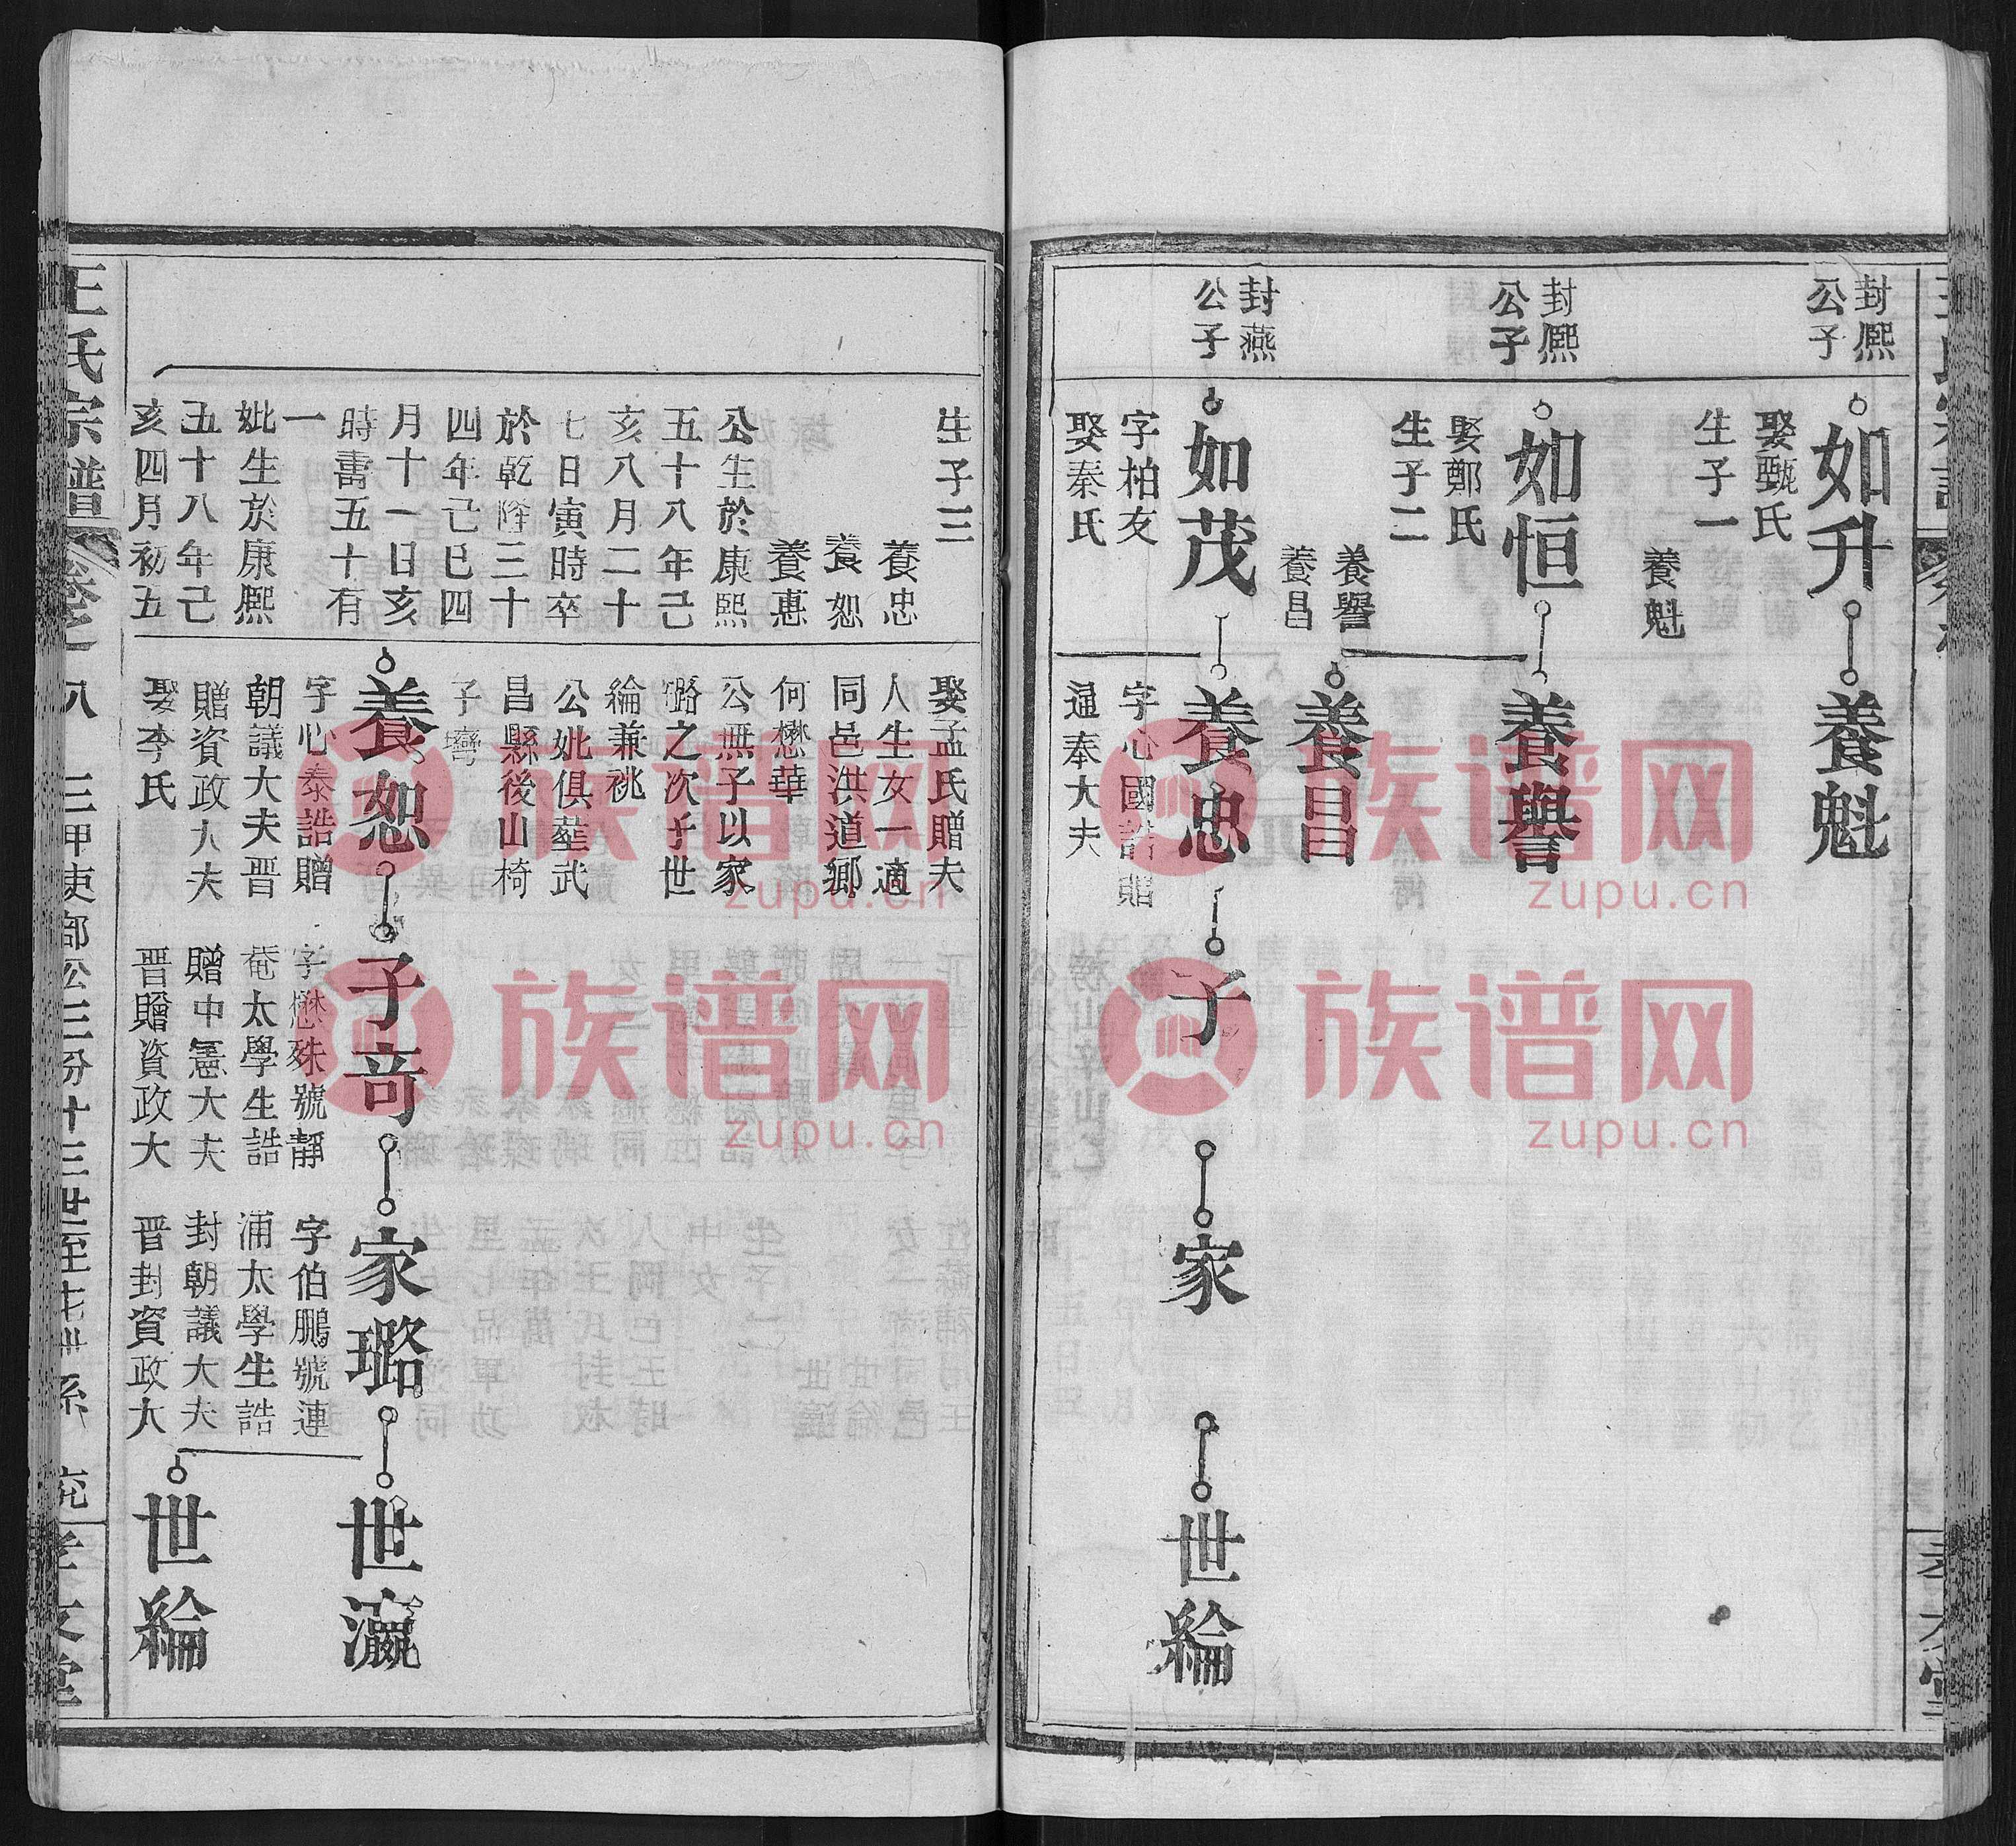 封熈
公子
如升
娶甄氏
生子一
養魁
養魁
封熈
公子
如恒
娶鄭氏
生子二
養譽
養昌
養譽
養昌
封燕
公子
如茂
字柏友
娶秦氏
養忠
字心國誥贈
通奉大夫
子
家
世綸
生子三
養忠
養恕
養惠
公生於康熙
五十八年己
亥八月二十
七日寅時卒
於乾隆三十
四年己巳四
月十一日亥
時壽五十有
一
妣生於康熈
五十八年己
亥四月初五
娶孟氏贈夫
人生女一適
同邑洪道鄉
何懋華
公無子以家
璐之次子世
綸兼祧
公妣俱塟武
昌縣後山椅
子灣
養恕
字心泰誥贈
朝議大夫晋
贈資政大夫
娶李氏
子奇
字懋殊號靜
菴太學生誥
贈中憲大夫
晋贈資政大
家璐
字伯鵬號連
浦太學生誥
封朝議大夫
晋封資政大
世瀛
世綸
王氏宗譜
卷之八
三甲吏部公三份十三世至
孝友堂
族谱网
zupu.cn
族谱网
zupu.cn
族谱网
zupu.cn
族谱网
zupu.cn